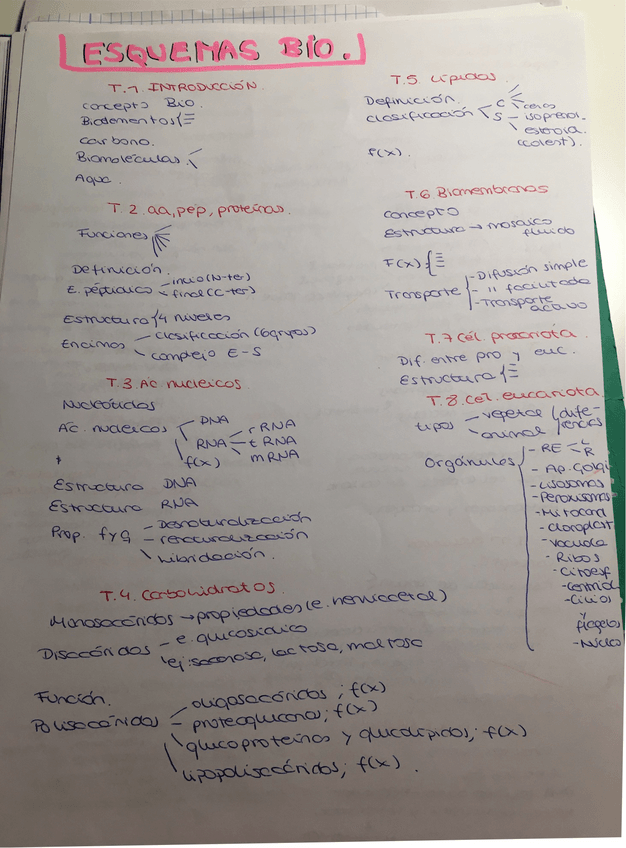 ESQUEMAS BIO.
T.1 INTRODUCCIÓN.
concepto Bio.
Bioelementos
carbono.
Biomoléculas
Agua.
T.2 aa, pep, proteínas.
Funciones
Definición.
E. peptídico - inicio (N-ter)
- final (C-ter)
Estructura 4 niveles
Encimas - clasificación (6 grupos)
- complejo E-S
T.3 Ac. nucleicos.
Nucleótidos
Ac. nucleicos - DNA
RNA - r RNA
- t RNA
- m RNA
f(x)
Estructura DNA
Estructura RNA
Prop. f y q - Desnaturalización
- renaturalización
- hibridación.
T.4. Carbohidratos.
Monosacáridos → propiedades (e. hemiacetal)
Disacáridos - e. glucosídico
ej: sacarosa, lactosa, maltosa
Función.
Polisacáridos - oligosacáridos; f(x)
- proteoglucanos; f(x)
- glucoproteínas y glucolípidos; f(x)
- lipopolisacáridos; f(x).
T.5 Lípidos
Definición.
clasificación - C
S - ceras
- isopreno.
- esteroia.
(colest).
f(x).
T.6 Biomembranas
concepto
estructura → mosaico
fluido
F(x)
Transporte - Difusión simple
- " facilitada
- Transporte
activo
T.7 Cél. procariota.
Dif. entre pro y euc.
Estructura
T.8. Cél. eucariota
tipos - vegetal (dife-
- animal rencias
Orgánulos - RE - L
R
- Ap. Golgi
- Lisosomas
- Peroxisomas
- Mitocond
- Cloroplast
- Vacuola
- Ribos
- Citoesq
- Centriol
- Cilios
y
flagelos
- Núcleo